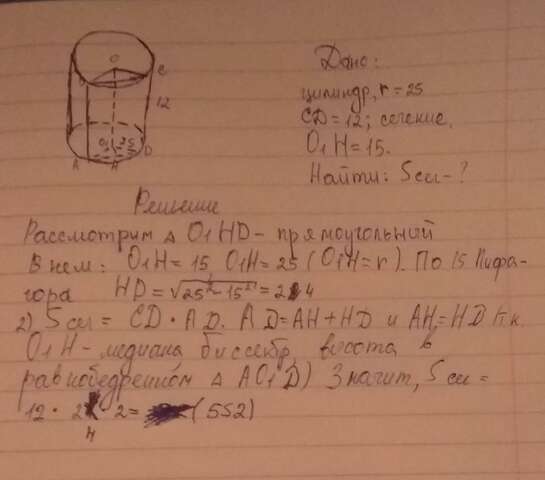 O
B
C
12
O1
25
A
H
D
Дано:
цилиндр, r = 25
CD = 12; сечение.
O1H = 15.
Найти: Sсеч - ?
Решение
Рассмотрим △ O1HD - прямоугольный
В нем: O1H = 15 O1H = 25 (O1H = r). По Пифа-
гора HD = √25² - 15² = 24
2) Sсеч = CD • AD. AD = AH + HD и AH = HD т.к.
O1H - медиана биссектр, высота в
равнобедренном △ AO1D) Значит, Sсеч =
12 • 2 2 = (552)
4